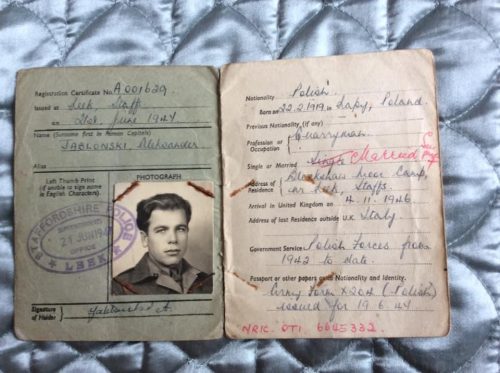 Registration Certificate No. A001639
Issued at Leek, Staffs
on 21st June 1947
Name (Surname first in Roman Capitals)
JABLONSKI, Aleksander
Alias
Left Thumb Print
(if unable to sign name
in English Characters).
PHOTOGRAPH
STAFFORDSHIRE POLICE
21 JUN 1947
OFFICE
LEEK
Signature
of Holder
Nationality Polish
Born on 22.2.1919 in Lapy, Poland
Previous Nationality (if any)
Profession or
Occupation
Quarryman
Single or Married Single Married
Address of
Residence
Blackshaw Moor Camp,
nr Leek, Staffs.
Arrival in United Kingdom on 4.11.1946.
Address of last Residence outside U.K. Italy
Government Service Polish Forces from
1942 to date.
Passport or other papers as to Nationality and Identity.
Army Form X204 (Polish)
issued for 19.6.47
NRIC. 6645332.